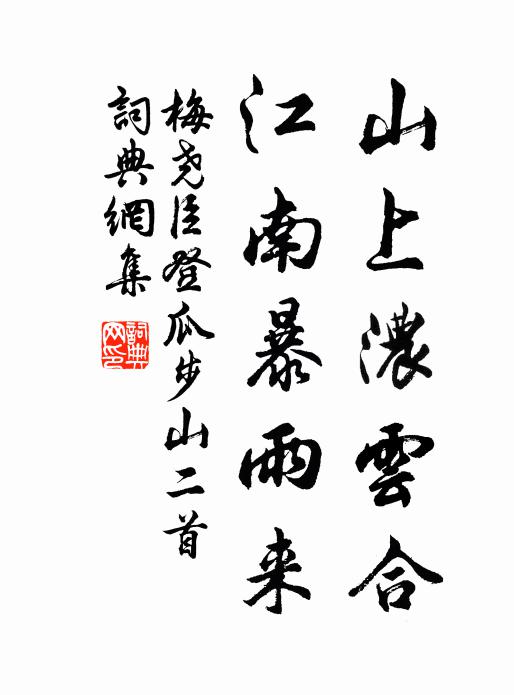 山上濃雲合
江南暴雨来
梅尭臣登瓜步山二首
詞典網集
詞典网印